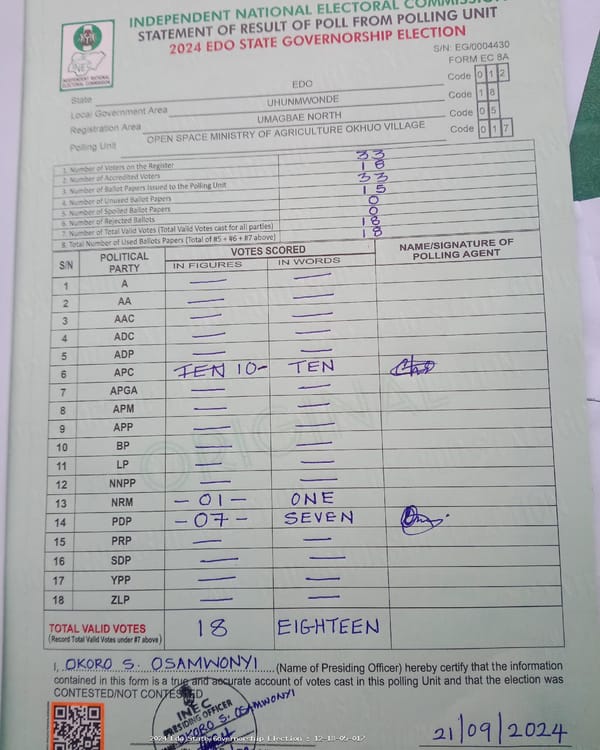 INDEPENDENT NATIONAL ELECTORAL COMMISSION
STATEMENT OF RESULT OF POLL FROM POLLING UNIT
2024 EDO STATE GOVERNORSHIP ELECTION
INEC
INDEPENDENT NATIONAL ELECTORAL COMMISSION
S/N: EG/0004430
FORM EC 8A
State EDO Code 0 1 2
Local Government Area UHUNMWONDE Code 1 8
Registration Area UMAGBAE NORTH Code 0 5
Polling Unit OPEN SPACE MINISTRY OF AGRICULTURE OKHUO VILLAGE Code 0 1 7
1. Number of Voters on the Register 33
2. Number of Accredited Voters 18
3. Number of Ballot Papers Issued to the Polling Unit 33
4. Number of Unused Ballot Papers 15
5. Number of Spoiled Ballot Papers 0
6. Number of Rejected Ballots 0
7. Number of Total Valid Votes (Total Valid Votes cast for all parties) 18
8. Total Number of Used Ballots Papers (Total of #5 + #6 + #7 above) 18
S/N POLITICAL PARTY VOTES SCORED NAME/SIGNATURE OF POLLING AGENT
IN FIGURES IN WORDS
1 A — —
2 AA — —
3 AAC — —
4 ADC — —
5 ADP — —
6 APC TEN 10- TEN
7 APGA — —
8 APM — —
9 APP — —
10 BP — —
11 LP — —
12 NNPP — —
13 NRM -01- ONE
14 PDP -07- SEVEN
15 PRP — —
16 SDP — —
17 YPP — —
18 ZLP — —
TOTAL VALID VOTES 18 EIGHTEEN
(Record Total Valid Votes under #7 above)
ORIGINAL
I, OKORO S. OSAMWONYI (Name of Presiding Officer) hereby certify that the information
contained in this form is a true and accurate account of votes cast in this polling Unit and that the election was
CONTESTED/NOT CONTESTED
INEC
PRESIDING OFFICER
OKORO S. OSAMWONYI
21/09/2024
2024 Edo State Governorship Election : 12-18-05-017